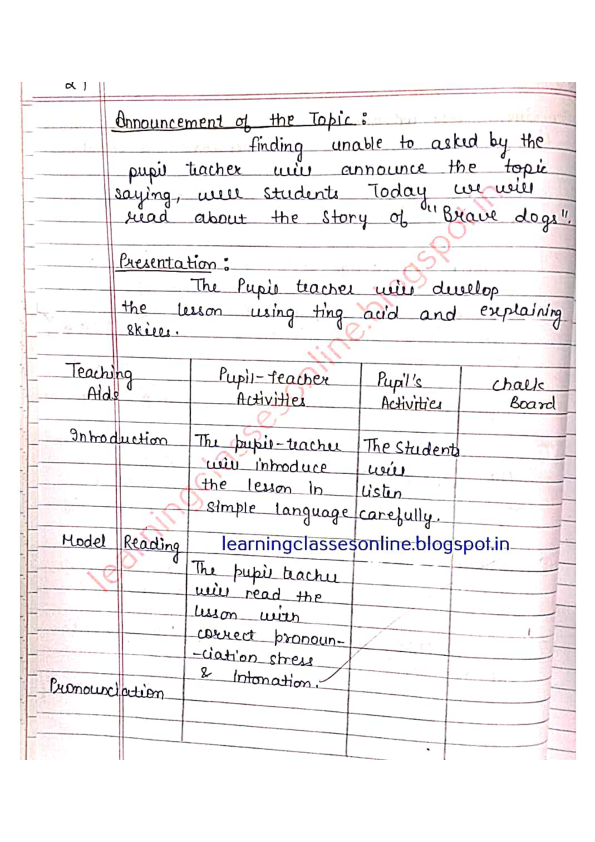 Announcement of the Topic :
finding unable to asked by the
pupil teacher will announce the topic
saying, well students Today we will
read about the Story of "Brave dogs".
Presentation :
The Pupil teacher will develop
the lesson using ting acid and explaining
skills.
Teaching Aids
Pupil-Teacher Activities
Pupil's Activities
Chalk Board
Introduction
The pupil-teacher
will introduce
the lesson in
simple language
The Students
will
listen
carefully.
Model Reading
learningclassesonline.blogspot.in
The pupil teacher
will read the
lesson with
correct pronoun-
-ciation stress
& Intonation.
Pronounciation
learningclassesonline.blogspot.in